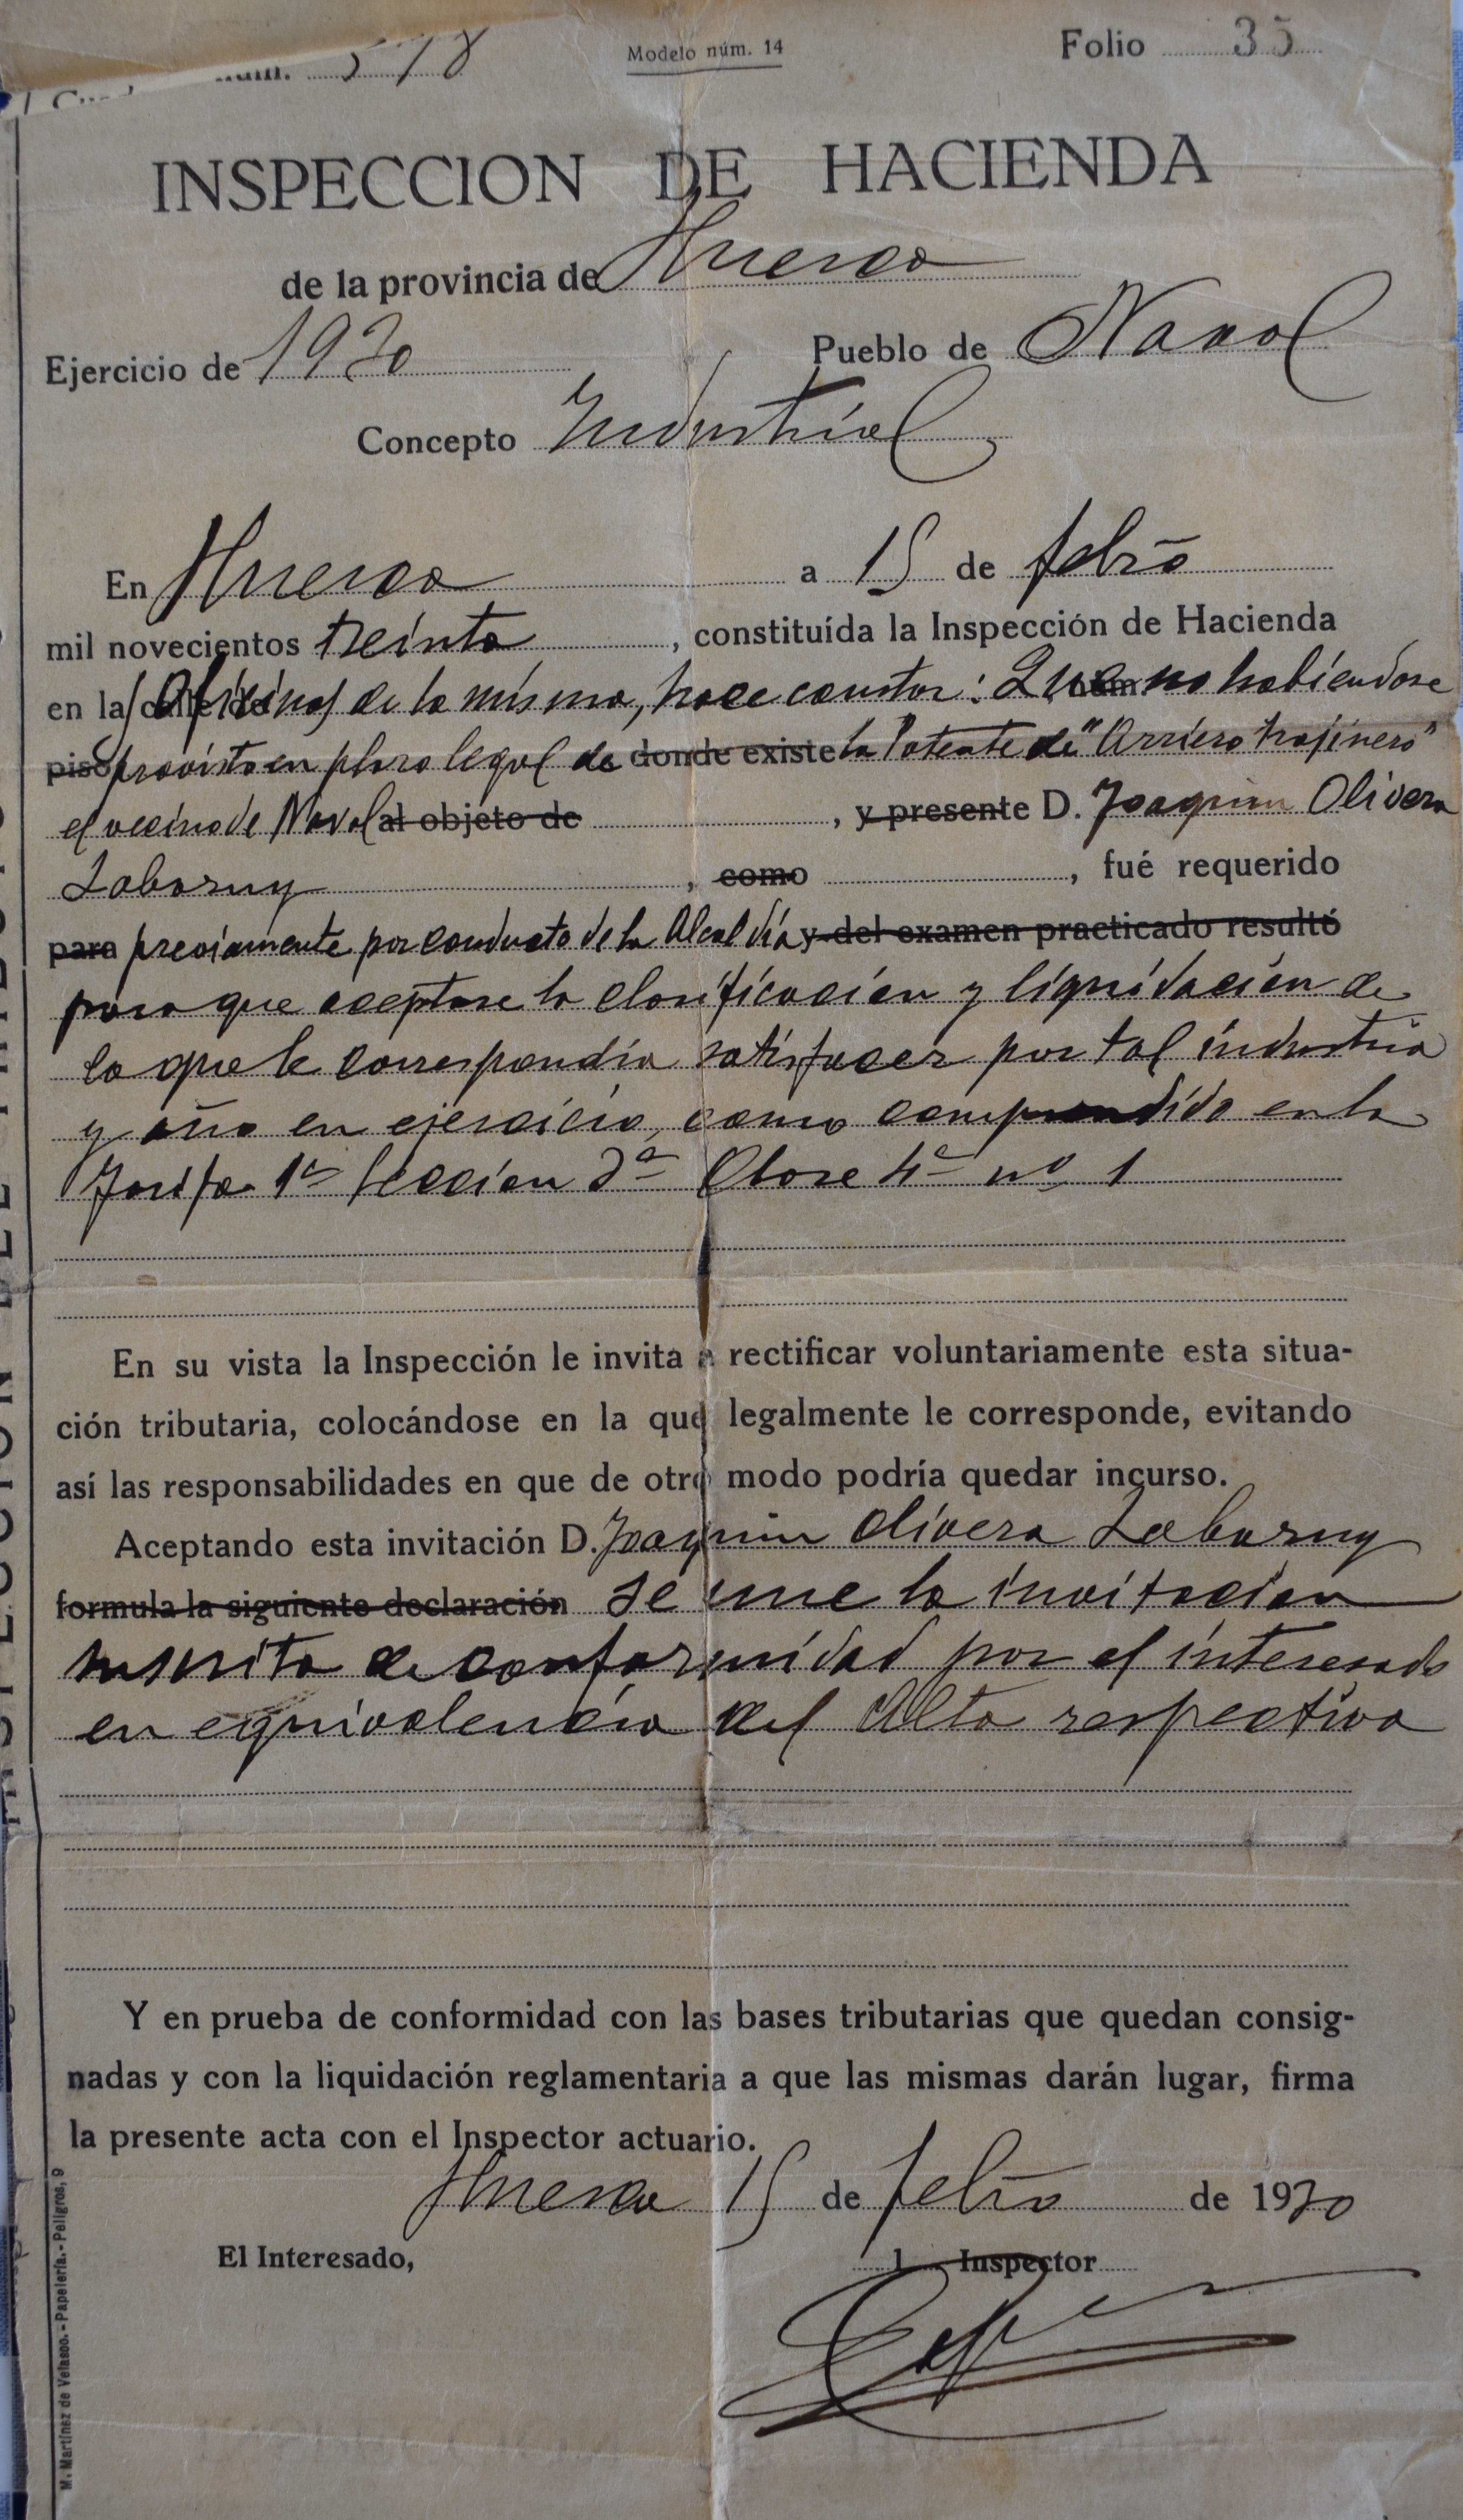 núm. 578 Modelo núm. 14 Folio 35
INSPECCION DE HACIENDA
de la provincia de Huesca
Ejercicio de 1930 Pueblo de Naval
Concepto Industrial
En Huesca a 15 de febrº
mil novecientos treinta, constituída la Inspección de Hacienda
en las calle de Oficinas de la misma, hace constar: Que núm. no habiendose
piso provisto en plazo legal de donde existe la Patente de "Arriero trajinero"
el vecino de Naval al objeto de , y presente D. Joaquin Olivera
Labazuy , como , fué requerido
para previamente por conducto de la Alcaldía y del examen practicado resultó
para que aceptase la clasificación y liquidación de
lo que le correspondía satisfacer por tal industria
y año en ejercicio, como comprendido en la
Tarifa 1ª Sección 3ª Clase 4ª nº 1
En su vista la Inspección le invita a rectificar voluntariamente esta situa-
ción tributaria, colocándose en la que legalmente le corresponde, evitando
así las responsabilidades en que de otro modo podría quedar incurso.
Aceptando esta invitación D. Joaquin Olivera Labazuy
formula la siguiente declaración se une la invitacion
suscrita de conformidad por el interesado
en equivalencia del Alta respectiva
Y en prueba de conformidad con las bases tributarias que quedan consig-
nadas y con la liquidación reglamentaria a que las mismas darán lugar, firma
la presente acta con el Inspector actuario.
Huesca 15 de febrº de 1930
El Interesado, l Inspector
M. Martínez de Velasco. - Papelería. - Peligros, 9